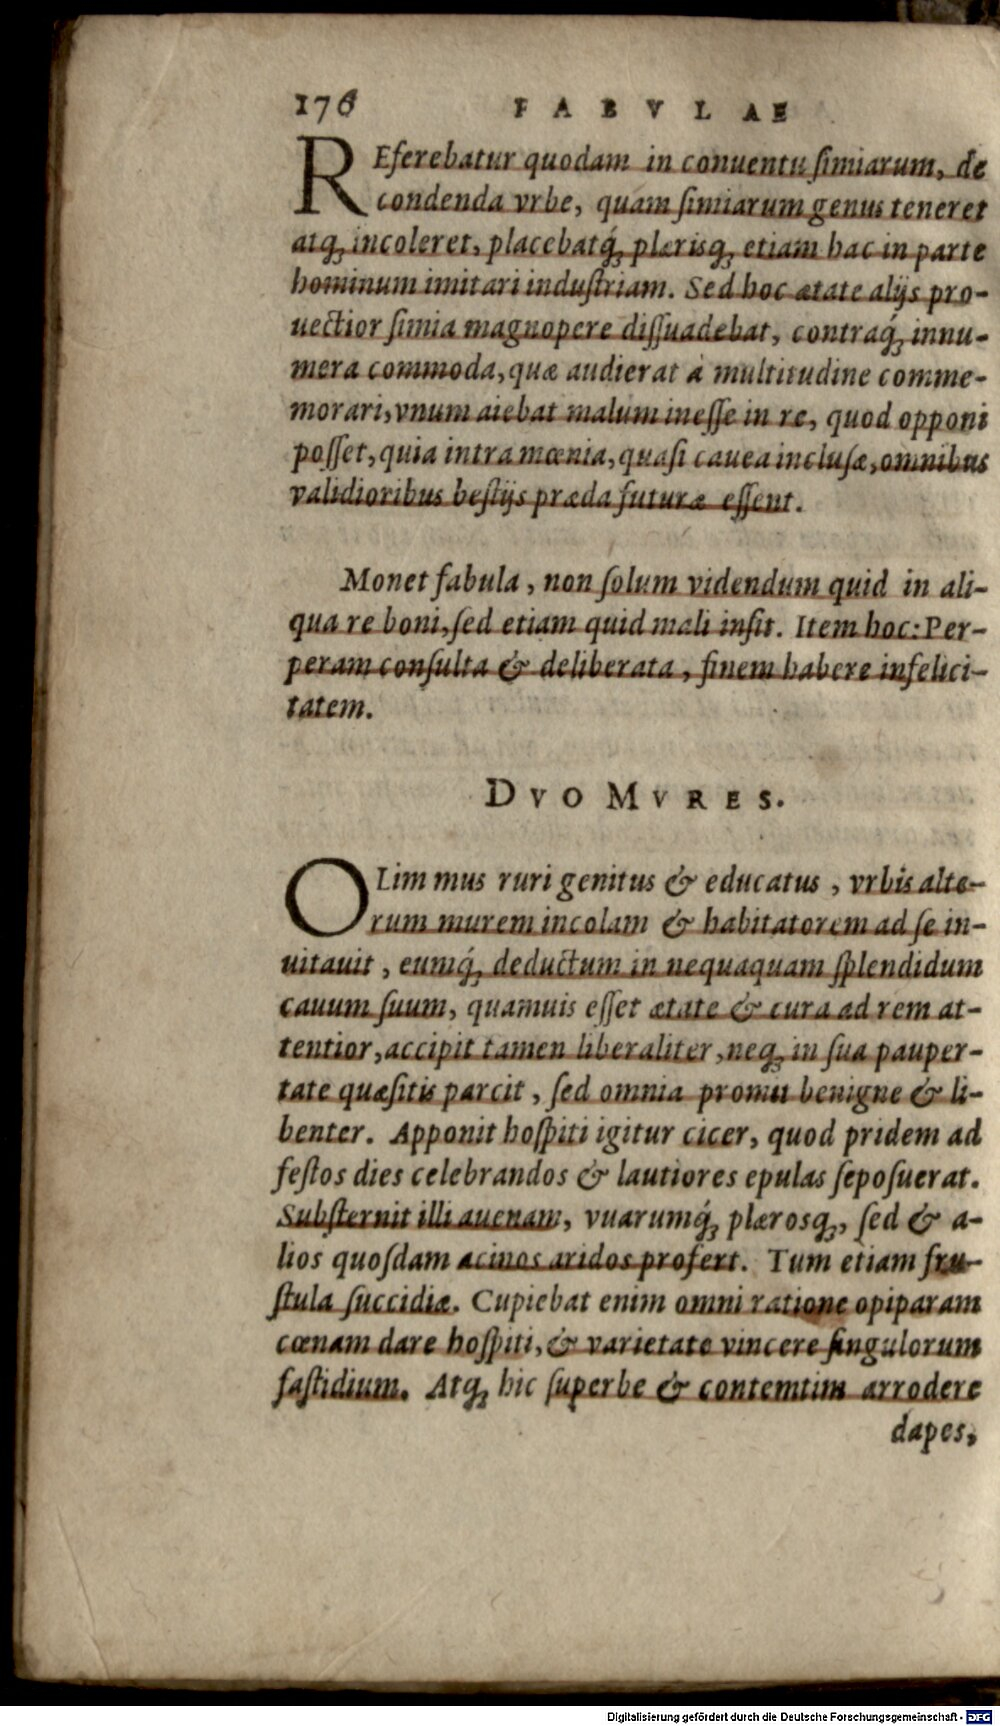 176 FABVLAE
REferebatur quodam in conuentu ſimiarum, de
condenda vrbe, quam ſimiarum genus teneret
atq; incoleret, placebatq́; plærisq; etiam hac in parte
hominum imitari induſtriam. Sed hoc ætate alijs pro-
uectior ſimia magnopere diſſuadebat, contraq́; innu-
mera commoda, quæ audierat à multitudine comme-
morari, vnum aiebat malum ineſſe in re, quod opponi
poſſet, quia intra mœnia, quaſi cauea incluſæ, omnibus
validioribus beſtijs præda futuræ eſſent.
Monet fabula, non ſolum videndum quid in ali-
qua re boni, ſed etiam quid mali inſit. Item hoc: Per-
peram conſulta & deliberata, finem habere infelici-
tatem.
DVO MVRES.
OLim mus ruri genitus & educatus, vrbis alte-
rum murem incolam & habitatorem ad ſe in-
uitauit, eumq́; deductum in nequaquam ſplendidum
cauum ſuum, quamuis eſſet ætate & cura ad rem at-
tentior, accipit tamen liberaliter, neq; in ſua pauper-
tate quæſitis parcit, ſed omnia promit benigne & li-
benter. Apponit hoſpiti igitur cicer, quod pridem ad
feſtos dies celebrandos & lautiores epulas ſepoſuerat.
Subſternit illi auenam, vuarumq́; plærosq;, ſed & a-
lios quoſdam acinos aridos profert. Tum etiam fru-
ſtula ſuccidiæ. Cupiebat enim omni ratione opiparam
cœnam dare hoſpiti, & varietate vincere ſingulorum
faſtidium. Atq; hic ſuperbe & contemtim arrodere
dapes,
Digitalisierung gefördert durch die Deutsche Forschungsgemeinschaft - DFG